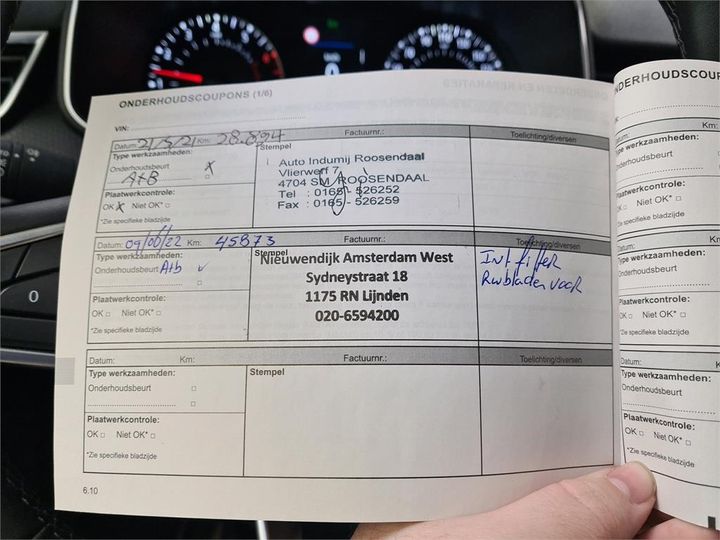 ONDERHOUDSCOUPONS (1/6)
VIN:
Datum: 21/5/21 Km: 28.894 Factuurnr.: Toelichting/diversen
Type werkzaamheden:
Onderhoudsbeurt X
A+B
Plaatwerkcontrole:
OK X Niet OK*
*Zie specifieke bladzijde
Stempel
Auto Indumij Roosendaal
Vlierwerf 7
4704 SM ROOSENDAAL
Tel : 0165 - 526252
Fax : 0165 - 526259
Datum: 09/ /22 Km: 45873 Factuurnr.: Toelichting/diversen
Type werkzaamheden:
Onderhoudsbeurt A+b ✓
Plaatwerkcontrole:
OK Niet OK*
*Zie specifieke bladzijde
Stempel
Nieuwendijk Amsterdam West
Sydneystraat 18
1175 RN Lijnden
020-6594200
Int filter
Rwbladen voor
Datum: Km: Factuurnr.: Toelichting/diversen
Type werkzaamheden:
Onderhoudsbeurt
Plaatwerkcontrole:
OK Niet OK*
*Zie specifieke bladzijde
Stempel
6.10
ONDERHOUDSCOUP
VIN:
Datum: Km:
Type werkzaamheden:
Onderhoudsbeurt
Plaatwerkcontrole:
OK Niet OK*
*Zie specifieke bladzijde
Datum: Km:
Type werkzaamheden:
Onderhoudsbeurt
Plaatwerkcontrole:
OK Niet OK*
*Zie specifieke bladzijde
Datum: Km:
Type werkzaamheden:
Onderhoudsbeurt
Plaatwerkcontrole:
OK Niet OK*
*Zie specifieke bladzijde
0